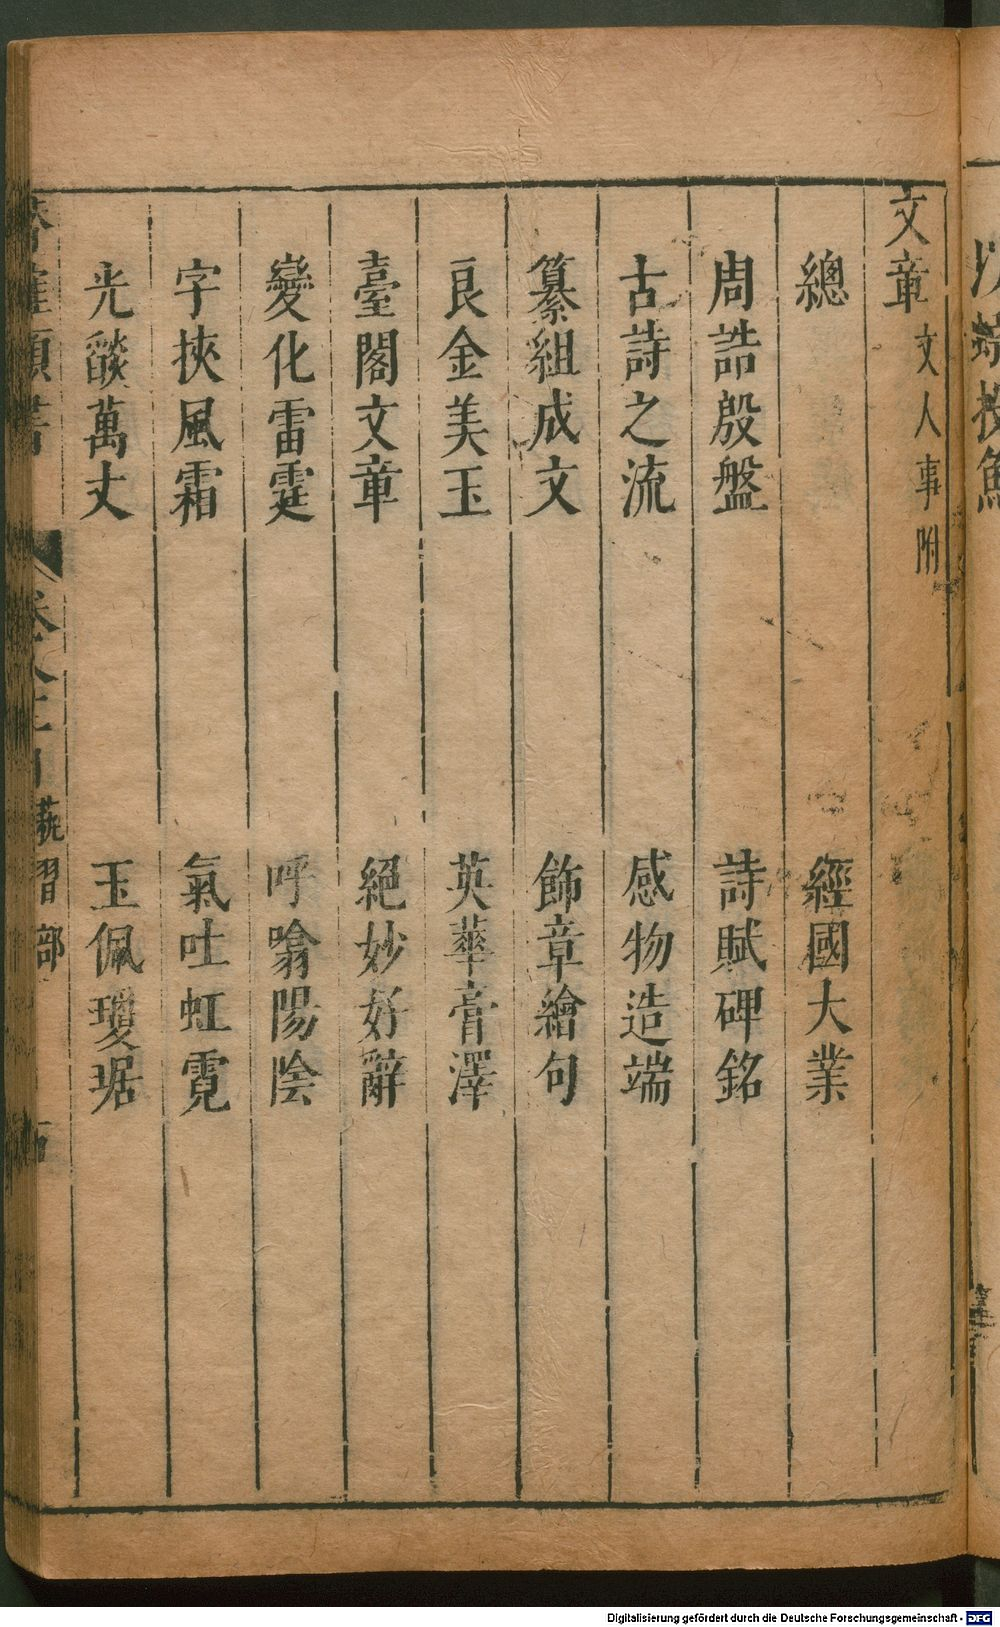 文章 文人事附
總 經國大業
周誥殷盤 詩賦碑銘
古詩之流 感物造端
纂組成文 飾章繪句
良金美玉 英華膏澤
臺閣文章 絕妙好辭
變化雷霆 呼噏陽陰
字挾風霜 氣吐虹霓
光燄萬丈 玉佩瓊琚
習部
Digitalisierung gefördert durch die Deutsche Forschungsgemeinschaft - DFG